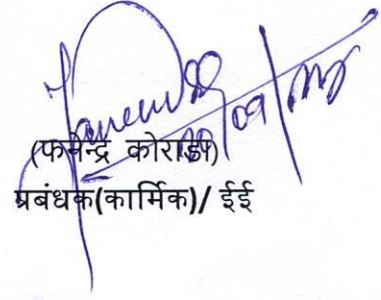 20/09/
(फनेन्द्र कोराडा)
प्रबंधक(कार्मिक)/ ईई